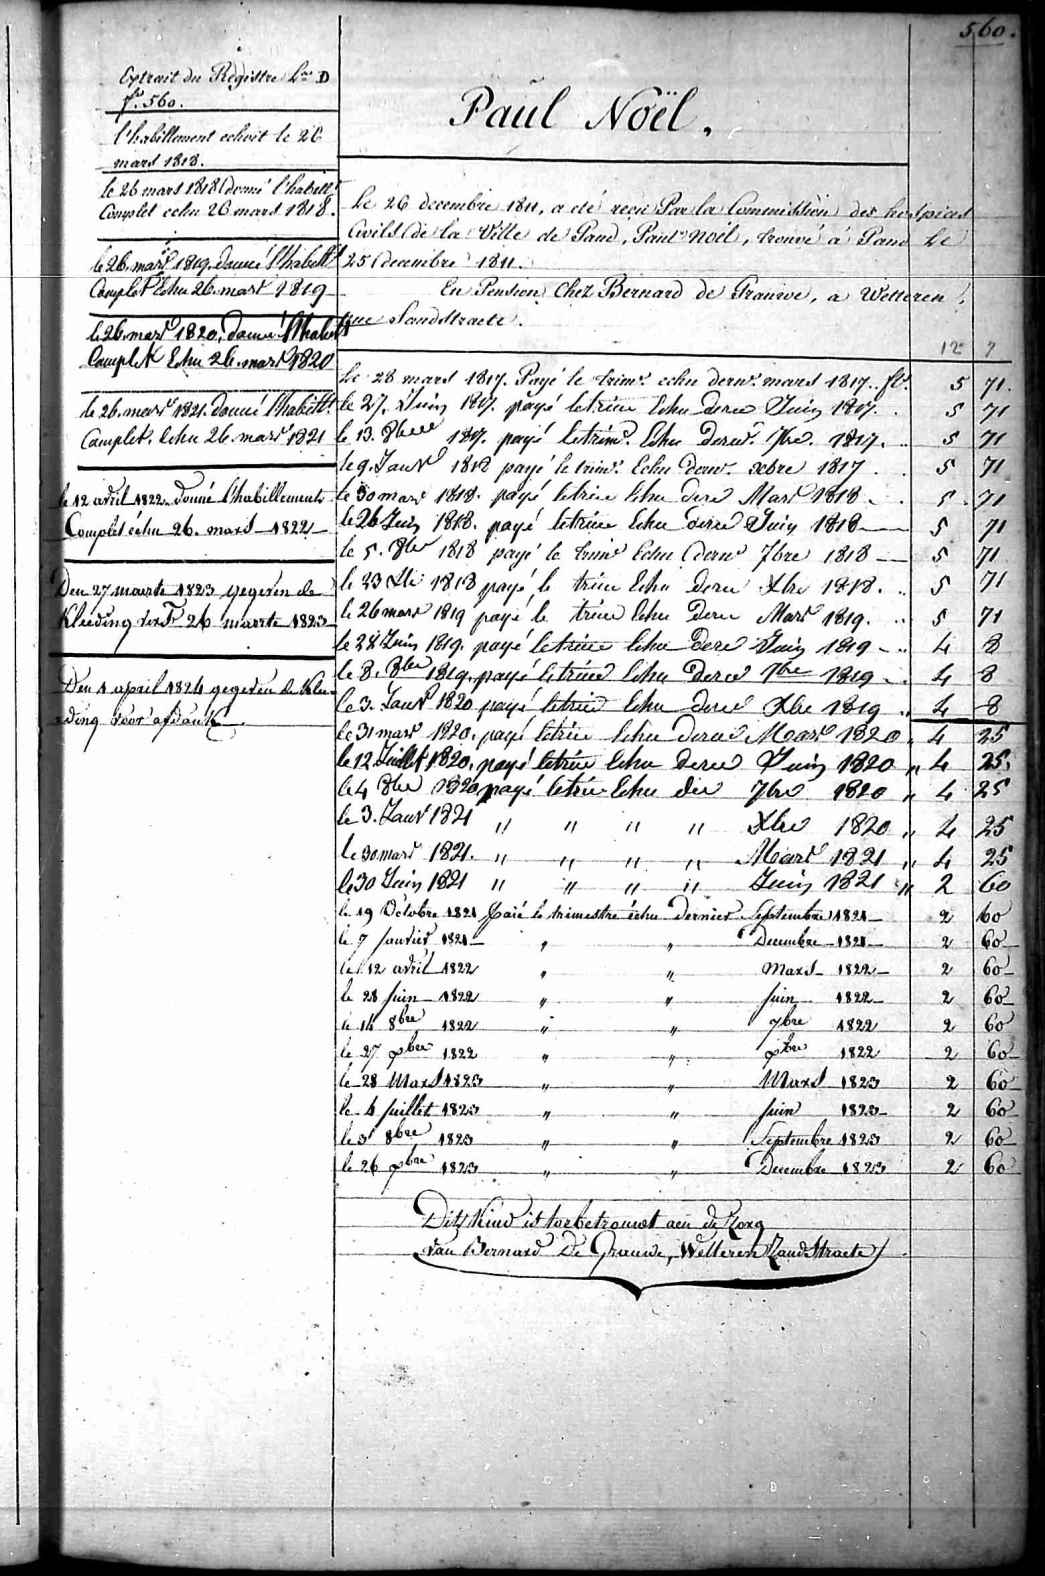 560.
Extrait du Registre Lra D
fo. 560.
l'habillement echoit le 26
mars 1818.
le 26 mars 1818 donné l'habillt
Complet echu 26 mars 1818.
le 26. mars 1819. donné l'habillt
Complet Echu 26. mars 1819
le 26. mars 1820. donné l'habillt
Complet Echu 26. mars 1820
le 26. mars 1821. donné l'habillt.
Complet. Echu 26. mars 1821
le 12 avril 1822. donné l'habillement
Complet échu 26. mars 1822
Den 27 maerte 1823 gegeven de
Kleeding 26 maerte 1823
Den 1 april 1824 gegeven de klee
ding voor afdank
Paul Noël.
Le 26 decembre 1811, a été recu Par la Commission des hospices
Civils de la Ville de Gand, Paul Noël, trouvé á Gand Le
25 decembre 1811.
En Pension Chez Bernard de Grauwe, a Wetteren,
rue Sandstraete.
12e 7
Le 28 mars 1817. Payé le trimr. echu dernr. mars 1817. fl. 5 71.
le 27. Juin 1817. payé letrim Echu dern Juin 1817. 5 71
le 13. 8bre 1817. payé letrimr. Echu dernr. 7bre. 1817. 5 71
le 9. Janvr 1818 payé le trimr. Echu dernr. xbre 1817. 5 71
le 30 mars 1818. payé letrim Echu dern Mars 1818. 5 71
le 26 Juin 1818. payé letrim Echu dern Juin 1818 5 71
le 5. 8bre 1818 payé le trimr Echu dernr 7bre 1818 5 71
le 23 Xbr 1818 payé le trim Echu dern Xbre 1818. 5 71
le 26 mars 1819 payé le trim Echu Dern Mars 1819. 5 71
le 22 Juin 1819. payé letrim Echu Dern Juin 1819 4 8
le 8. 8bre 1819. payé letrim Echu Dern 7bre 1819 4 8
le 3. Janvr 1820 payé letrim Echu dern Xbre 1819 4 8
le 31 mars 1820. payé letrim Echu dern Mars 1820 4 25
le 12 Juillet 1820. payé letrim Echu dern Juin 1820 " 4 25.
le 4 8bre 1820 payé letrim Echu der 7bre 1820 " 4 25
le 3. Janvr 1821 " " " " Xbre 1820 " 4 25
le 30 mars 1821. " " " " Mars 1821 " 4 25
le 30 Juin 1821 " " " " Juin 1821 " 2 60
le 19 Octobre 1821 Paié le trimestre échu Dernier Septembre 1821 2 60
le 7 Janvier 1821 " " Decembre 1821 2 60
le 12 avril 1822 " " Mars 1822 2 60
le 28 Juin 1822 " " Juin 1822 2 60
le 14 8bre 1822 " " 7bre 1822 2 60
le 27 xbre 1822 " " xbre 1822 2 60
le 28 Mars 1823 " " Mars 1823 2 60
le 4 Juillet 1823 " " Juin 1823 2 60
le 3 8bre 1823 " " Septembre 1823 2 60
le 26 xbre 1823 " " Decembre 1823 2 60
Dit Kind is toebetrouwt aen de Zorg
van Bernard De Grauwe, Wetteren Zandstraete